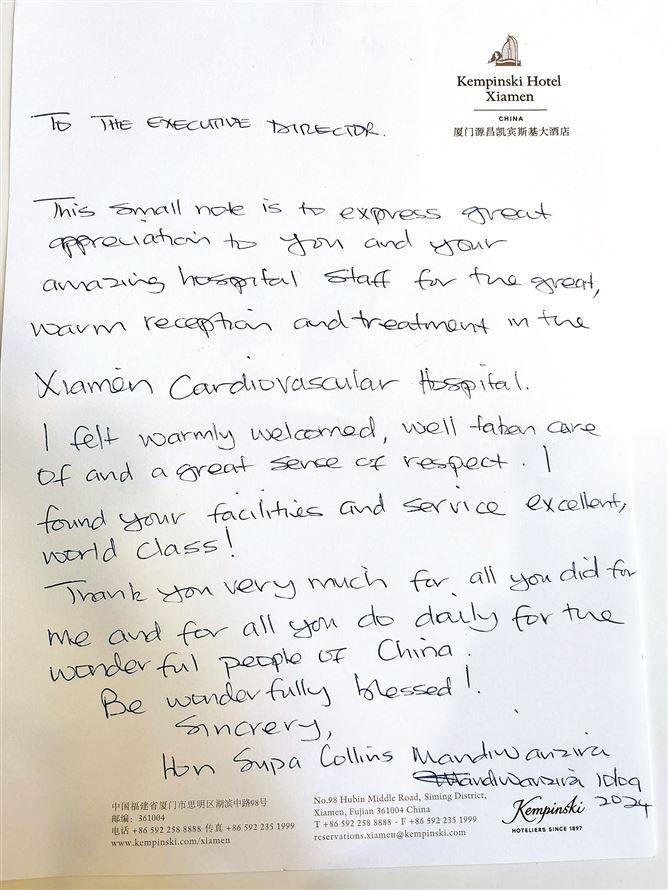 Kempinski Hotel
Xiamen
CHINA
厦门源昌凯宾斯基大酒店
TO THE EXECUTIVE DIRECTOR.
This small note is to express great
appreciation to you and your
amazing hospital staff for the great,
warm reception and treatment in the
Xiamen Cardiovascular Hospital.
I felt warmly welcomed, well taken care
of and a great sense of respect. I
found your facilities and service excellent,
world class!
Thank you very much for all you did for
me and for all you do daily for the
wonderful people of China.
Be wonderfully blessed!
Sincrery,
Hon Supa Collins Mandiwanzira
Mandiwanzira 10/09
2024
中国福建省厦门市思明区湖滨中路98号
邮编: 361004
电话 +86 592 258 8888 传真 +86 592 235 1999
www.kempinski.com/xiamen
No.98 Hubin Middle Road, Siming District,
Xiamen, Fujian 361004 China
T +86 592 258 8888 - F +86 592 235 1999
reservations.xiamen@kempinski.com
Kempinski
HOTELIERS SINCE 1897